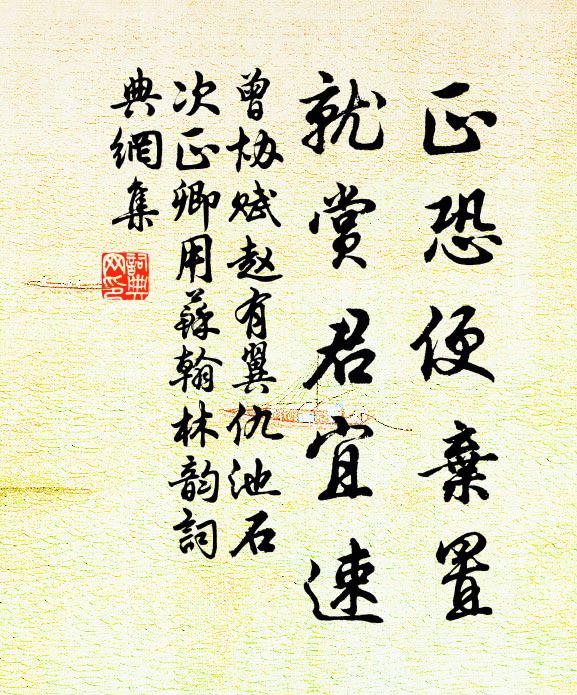 正恐便棄置
就賞君宜速
曾协賦赵有翼仇池石
次正卿用蘇翰林韵詞
典網集
詞典
网印